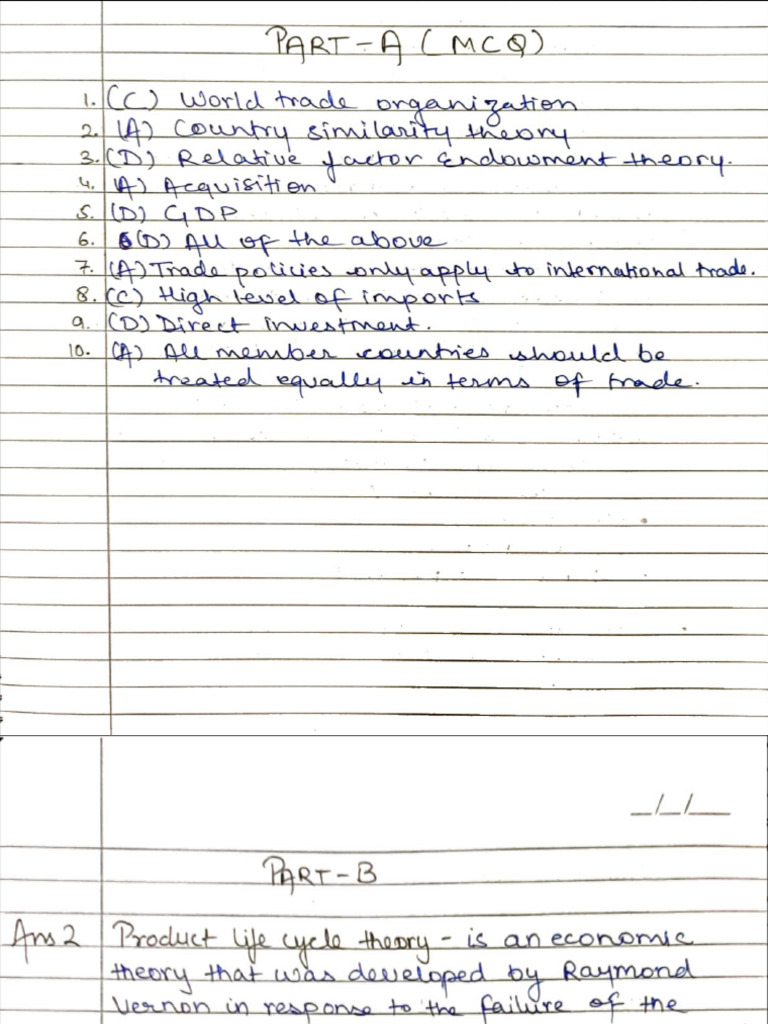 PART-A (MCQ)
1. (C) World trade organization
2. (A) Country similarity theory
3. (D) Relative factor Endowment theory.
4. (A) Acquisition
5. (D) GDP
6. (D) All of the above
7. (A) Trade policies only apply to international trade.
8. (C) High level of imports
9. (D) Direct investment.
10. (A) All member countries should be
treated equally in terms of trade.
_/_/_
PART-B
Ans 2 Product life cycle theory - is an economic
theory that was developed by Raymond
Vernon in response to the failure of the